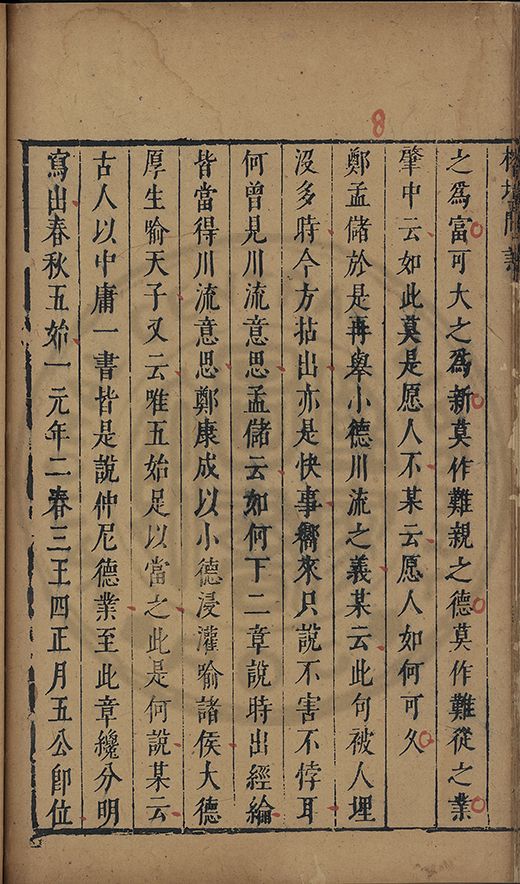 榕壇問業
8
之為富可大之為新莫作難親之德莫作難從之業
肇中云如此莫是愿人不某云愿人如何可久
鄭孟儲於是再舉小德川流之義某云此句被人埋
沒多時今方拈出亦是快事嚮來只說不害不悖耳
何曾見川流意思孟儲云如何下二章說時出經綸
皆當得川流意思鄭康成以小德浸灌喻諸侯大德
厚生喻天子又云唯五始足以當之此是何說某云
古人以中庸一書皆是說仲尼德業至此章纔分明
寫出春秋五始一元年二春三王四正月五公即位